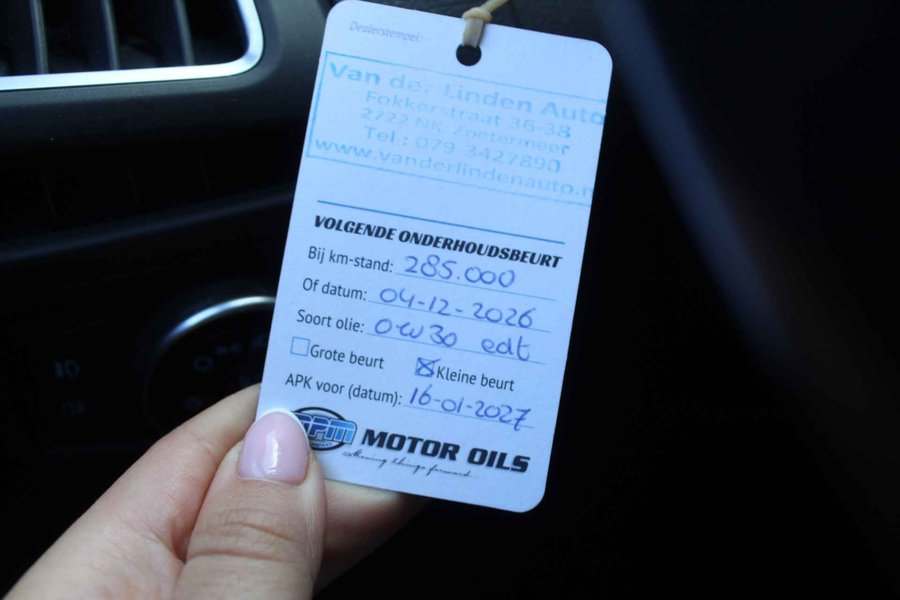 Dealerstempel:
Van der Linden Auto
Fokkerstraat 36-38
2722 NK Zoetermeer
Tel : 079 3427890
www.vanderlindenauto.n
VOLGENDE ONDERHOUDSBEURT
Bij km-stand: 285.000
Of datum: 04-12-2026
Soort olie: 0W30 edt
Grote beurt Kleine beurt
APK voor (datum): 16-01-2027
MPM MOTOR OILS
Moving things forward...